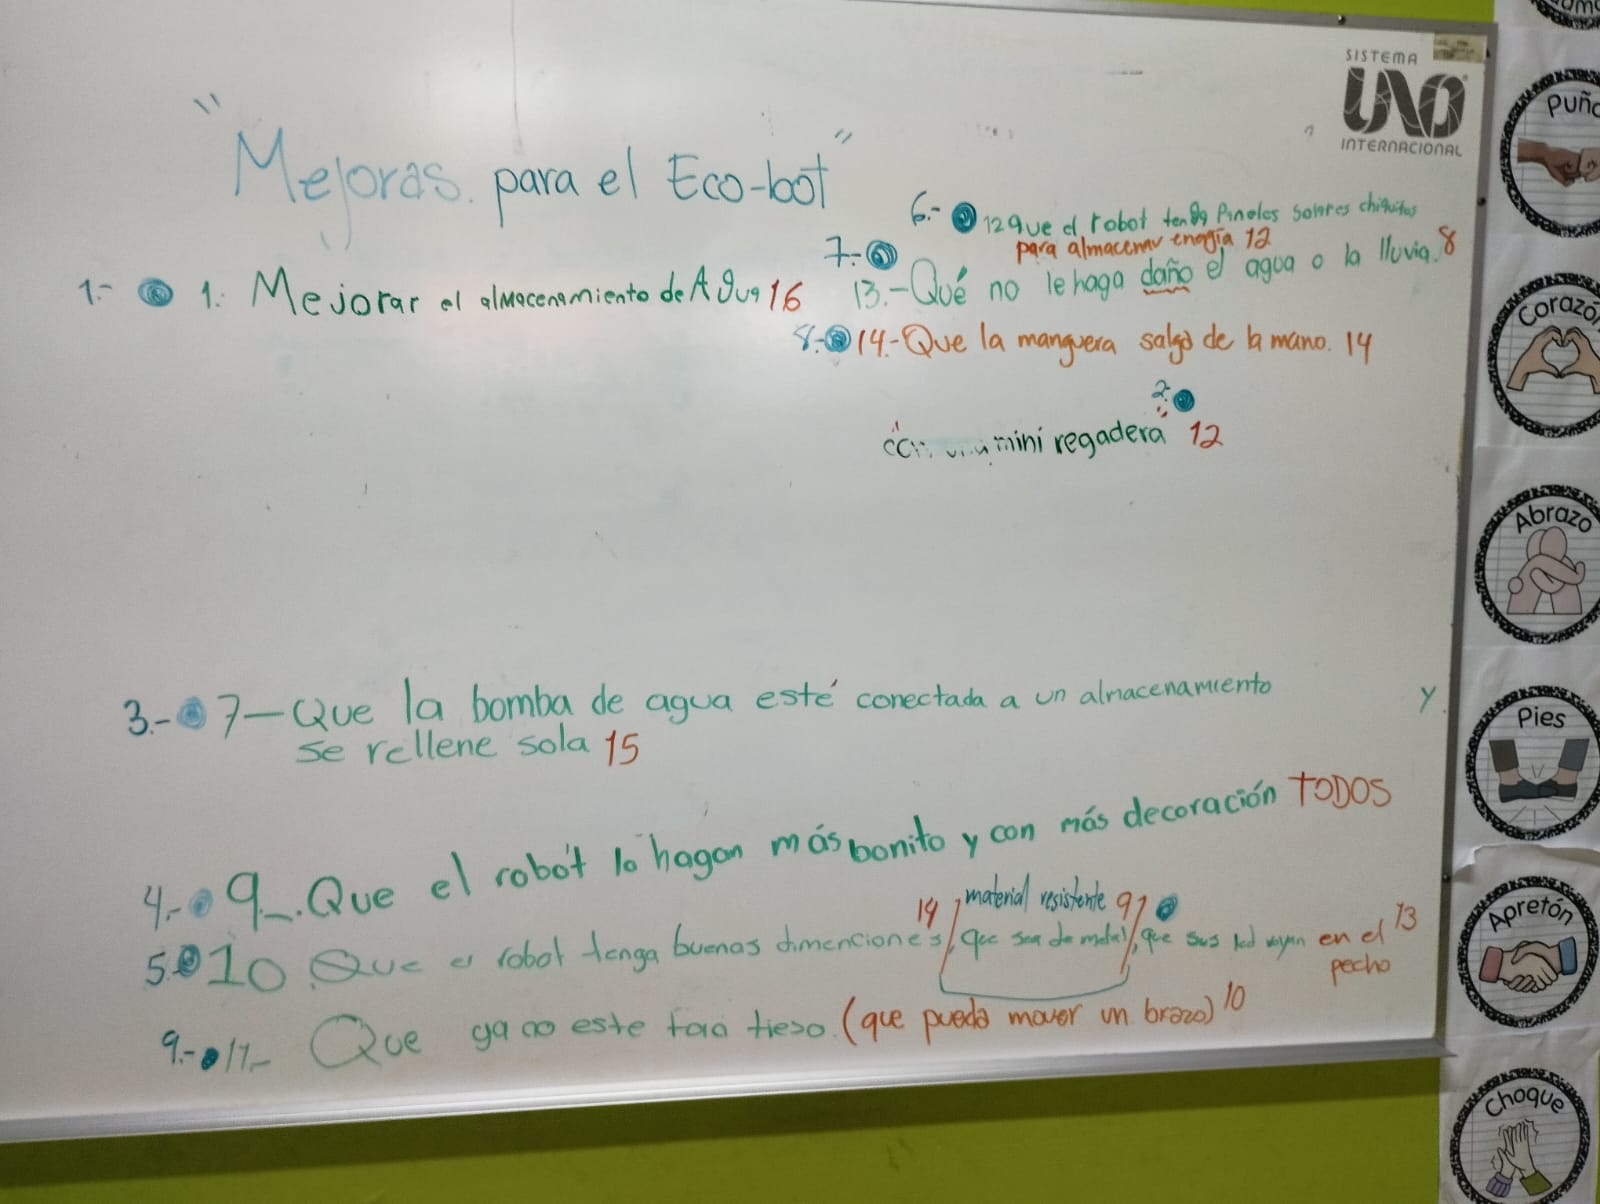 "Mejoras para el Eco-bot"
SISTEMA
UNO
INTERNACIONAL
1.- 1. Mejorar el almacenamiento de Agua 16
6.- 12 que el robot tenga Pineles solares chiquitos
para almacenar energía 12
7.-
13.- Qué no le haga daño el agua o la lluvia. 8
8.- 14.- Que la manguera salga de la mano. 14
2.-
mini regadera" 12
3.- 7- Que la bomba de agua esté conectada a un almacenamiento y
se rellene sola 15
4.- 9-. Que el robot lo hagan más bonito y con más decoración TODOS
material resistente 9
5. 10. Que el robot tenga buenas dimenciones 14, que sea de metal, que sus led vayan en el 13
pecho
9.- 11.- Que ya no este tieso. (que pueda mover un brazo) 10
Puño
Corazón
Abrazo
Pies
Apretón
Choque